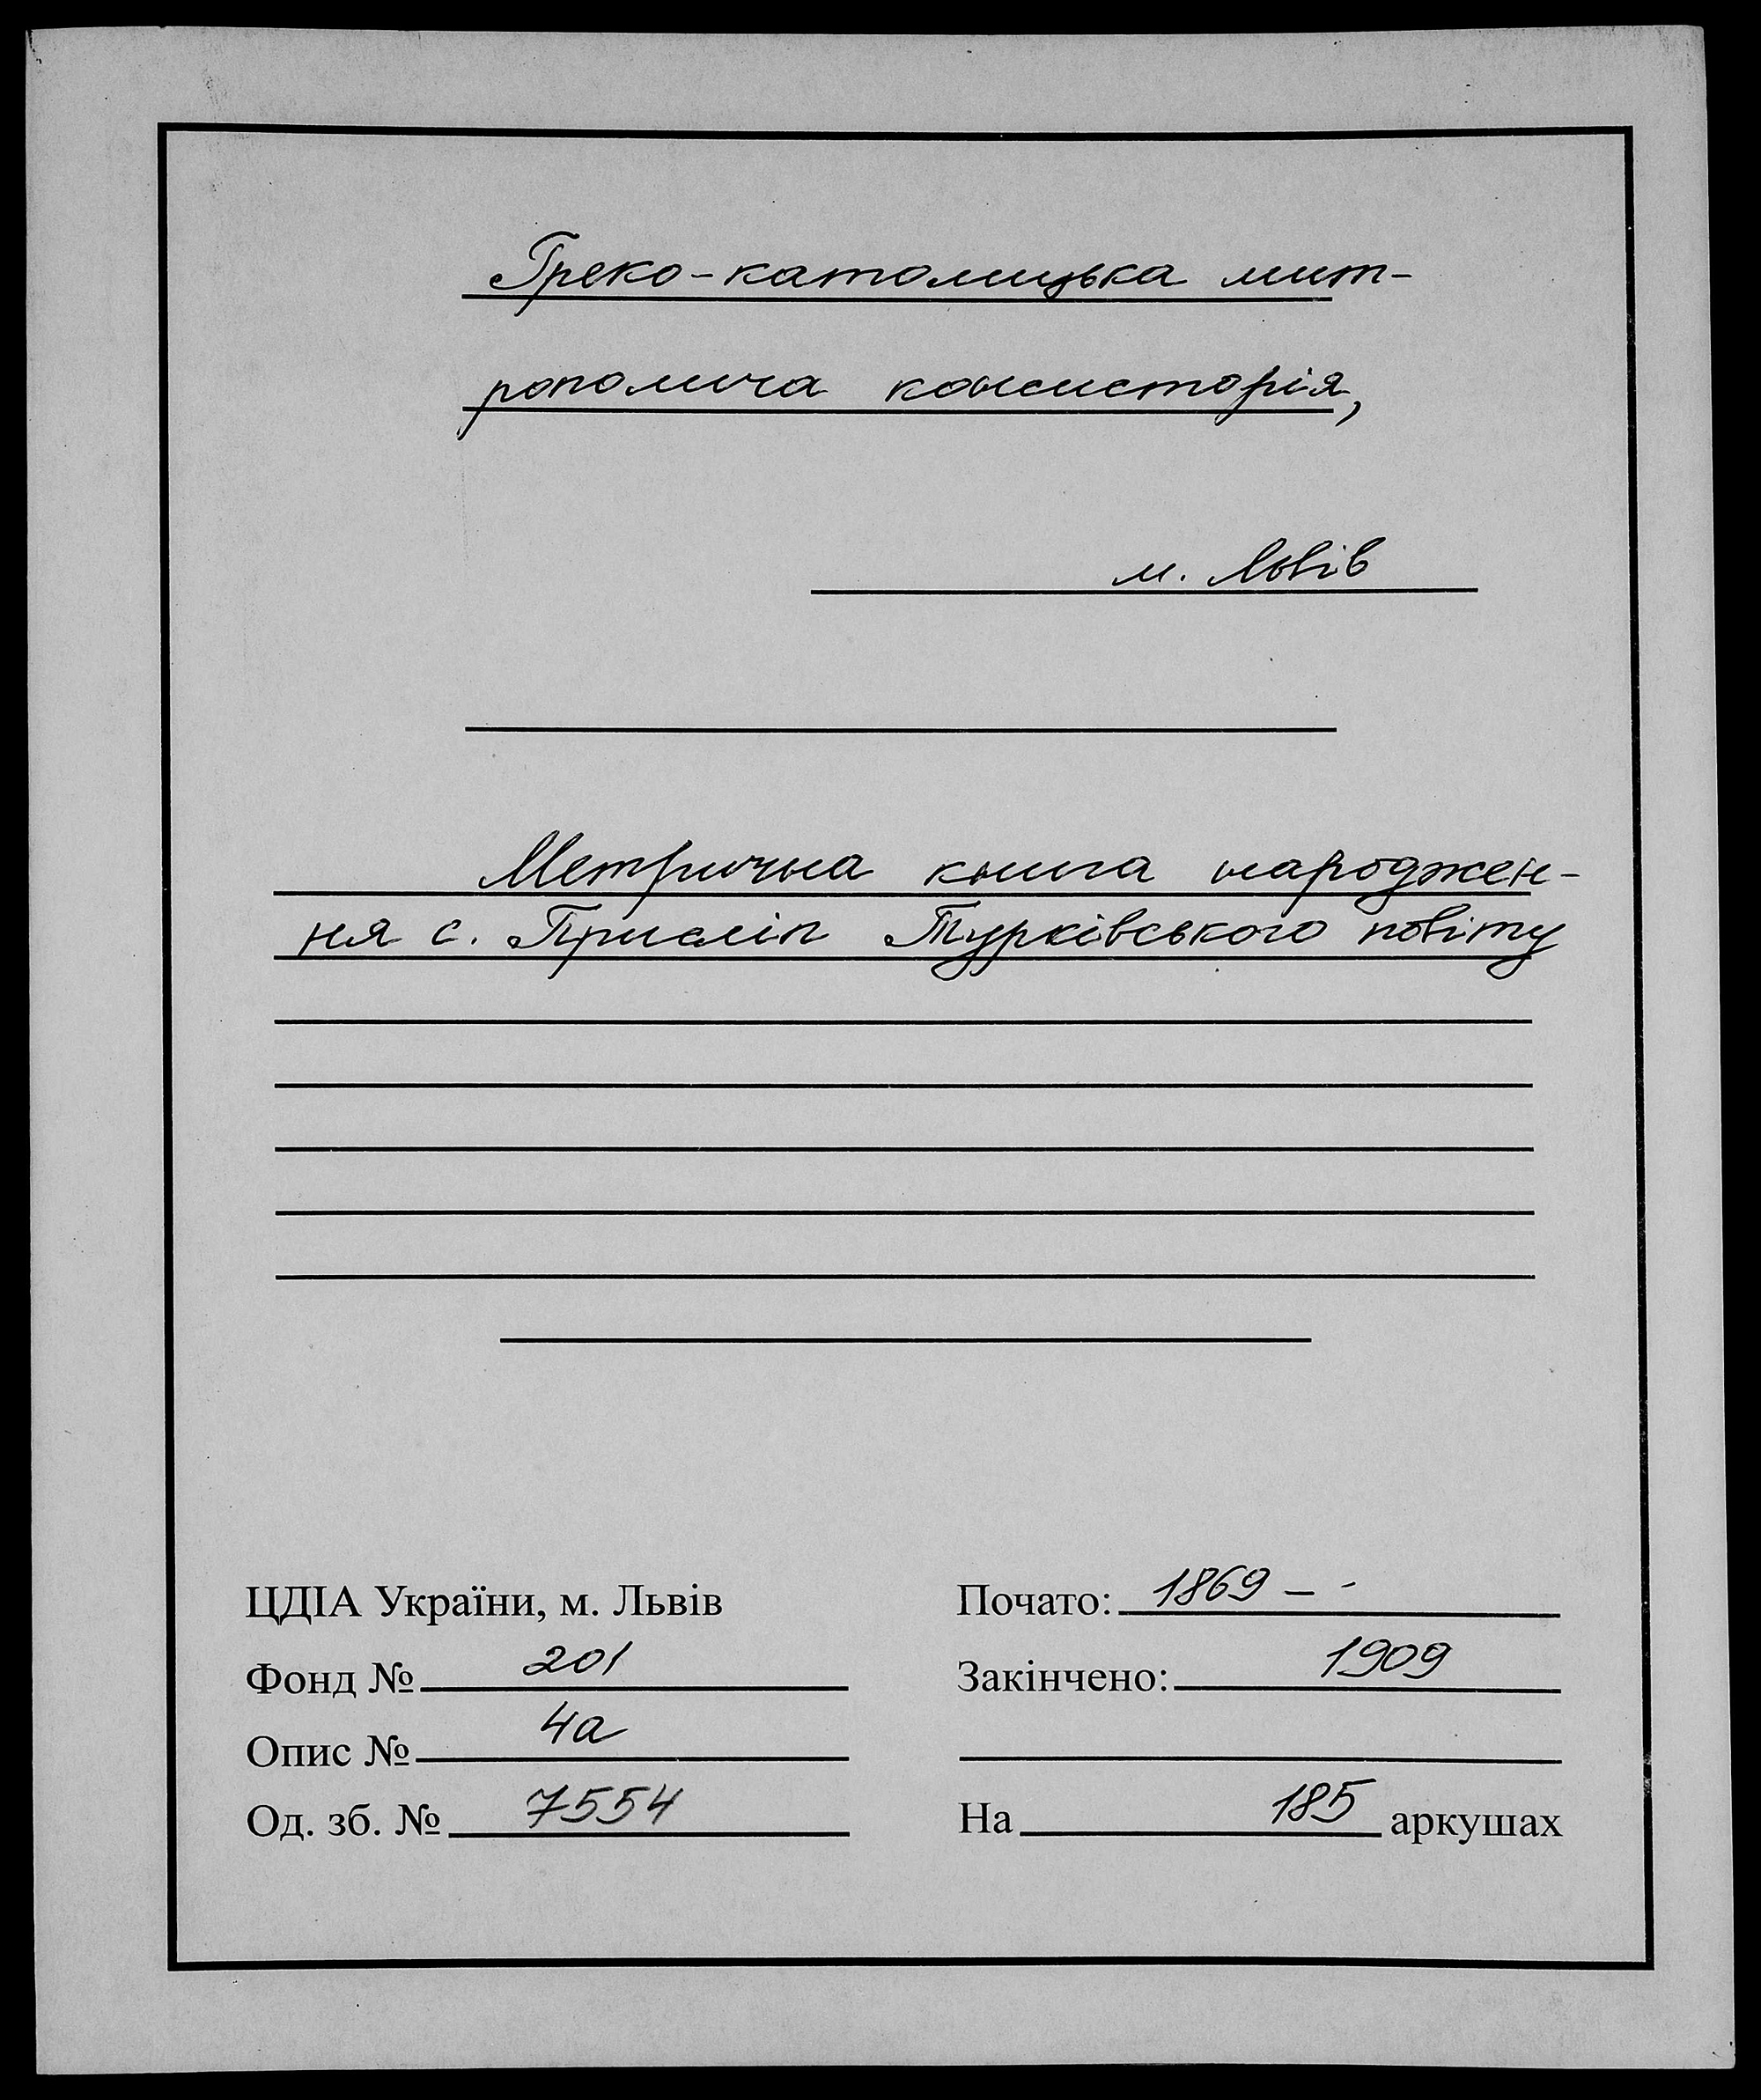 Греко-католицька мит-
рополича консисторія,
м. Львів
Метрична книга народжен-
ня с. Присліп Турківського повіту
ЦДІА України, м. Львів
Фонд № 201
Опис № 4а
Од. зб. № 7554
Почато: 1869 –
Закінчено: 1909
На 185 аркушах